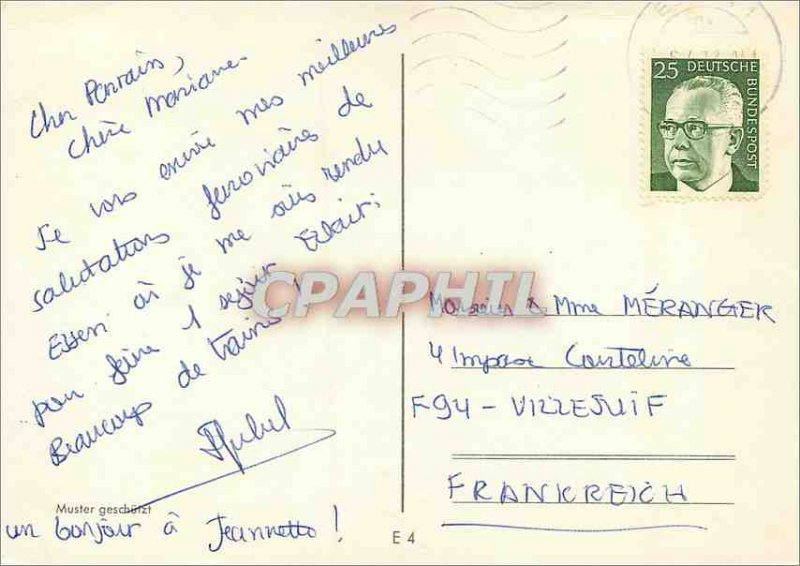 Cher Parrain,
Chère Mariane
Je vous envoie mes meilleures
salutations ferroviaires de
Essen où je me suis rendu
pour faire 1 séjour éclair;
Beaucoup de trains!
un bonjour à Jeannette!
Muster geschützt
E 4
25 DEUTSCHE
BUNDESPOST
Monsieur & Mme MÉRANGER
4 Impasse Courteline
F94 - VILLEJUIF
FRANKREICH
CPAPHIL